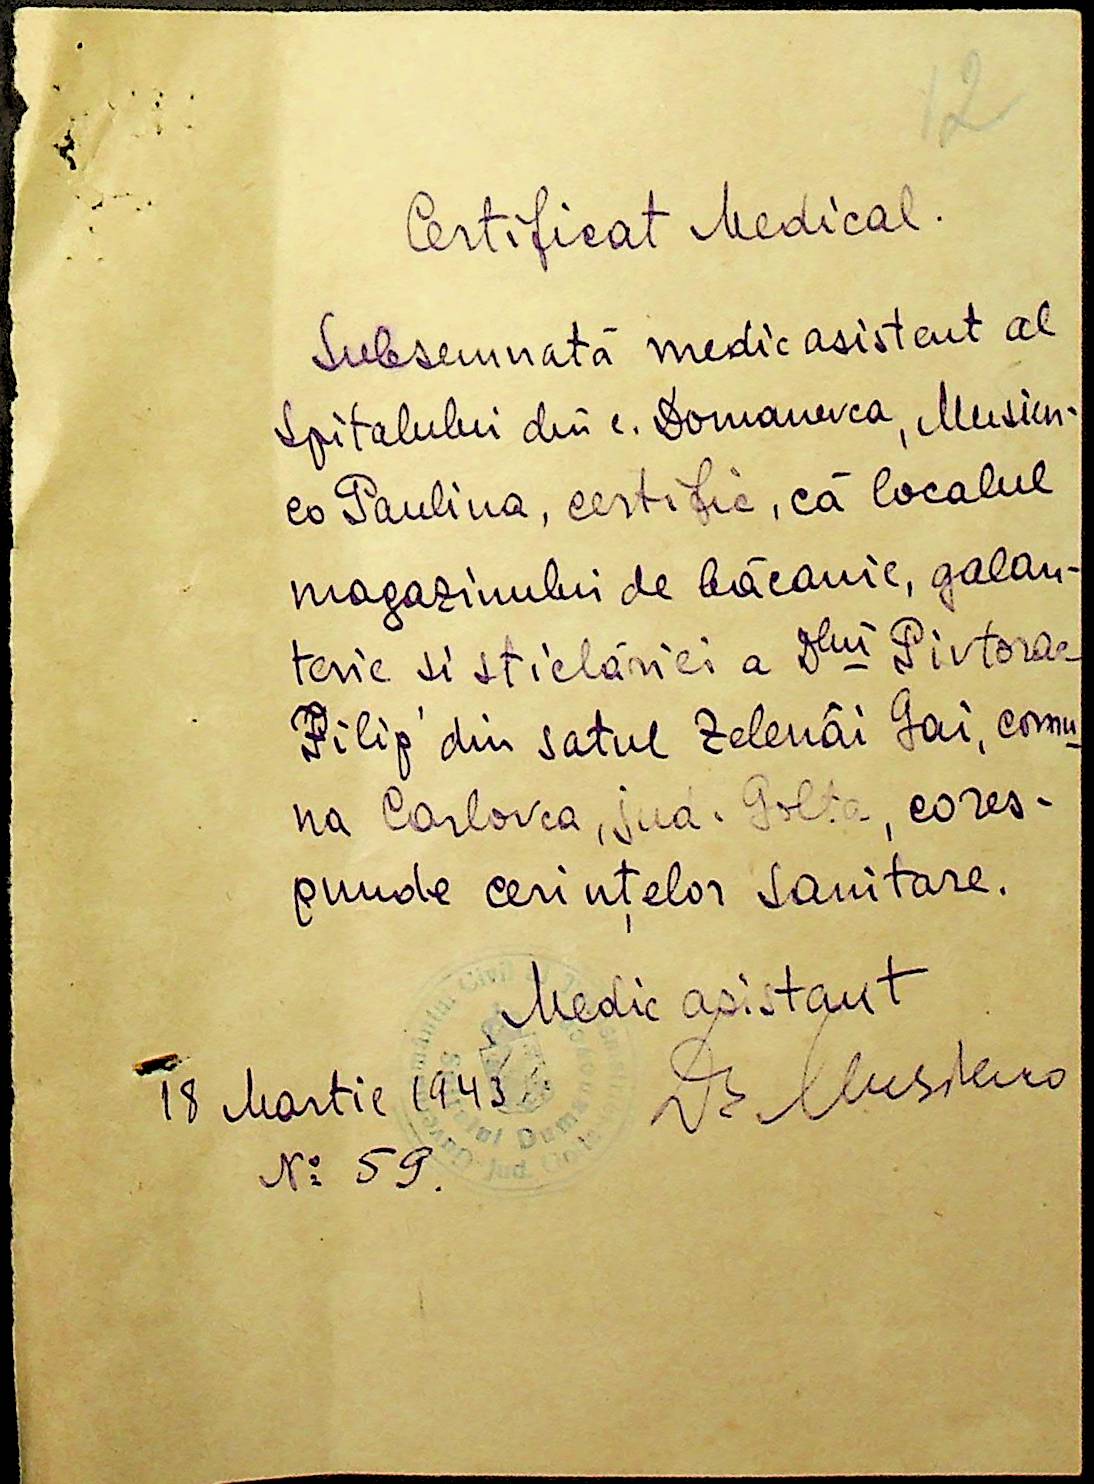 12
Certificat Medical.
Subsemnată medic asistent al
Spitalului din c. Domanevca, Musien-
co Paulina, certific, că localul
magazinului de băcanie, galan-
terie si sticlăriei a Dlui Pivtorac
Filip din satul Zelenâi Gai, comu-
na Carlovca, jud. Golta, cores-
punde cerințelor sanitare.
Medic asistant
18 Martie 1943
Dr Musienco
№ 59.